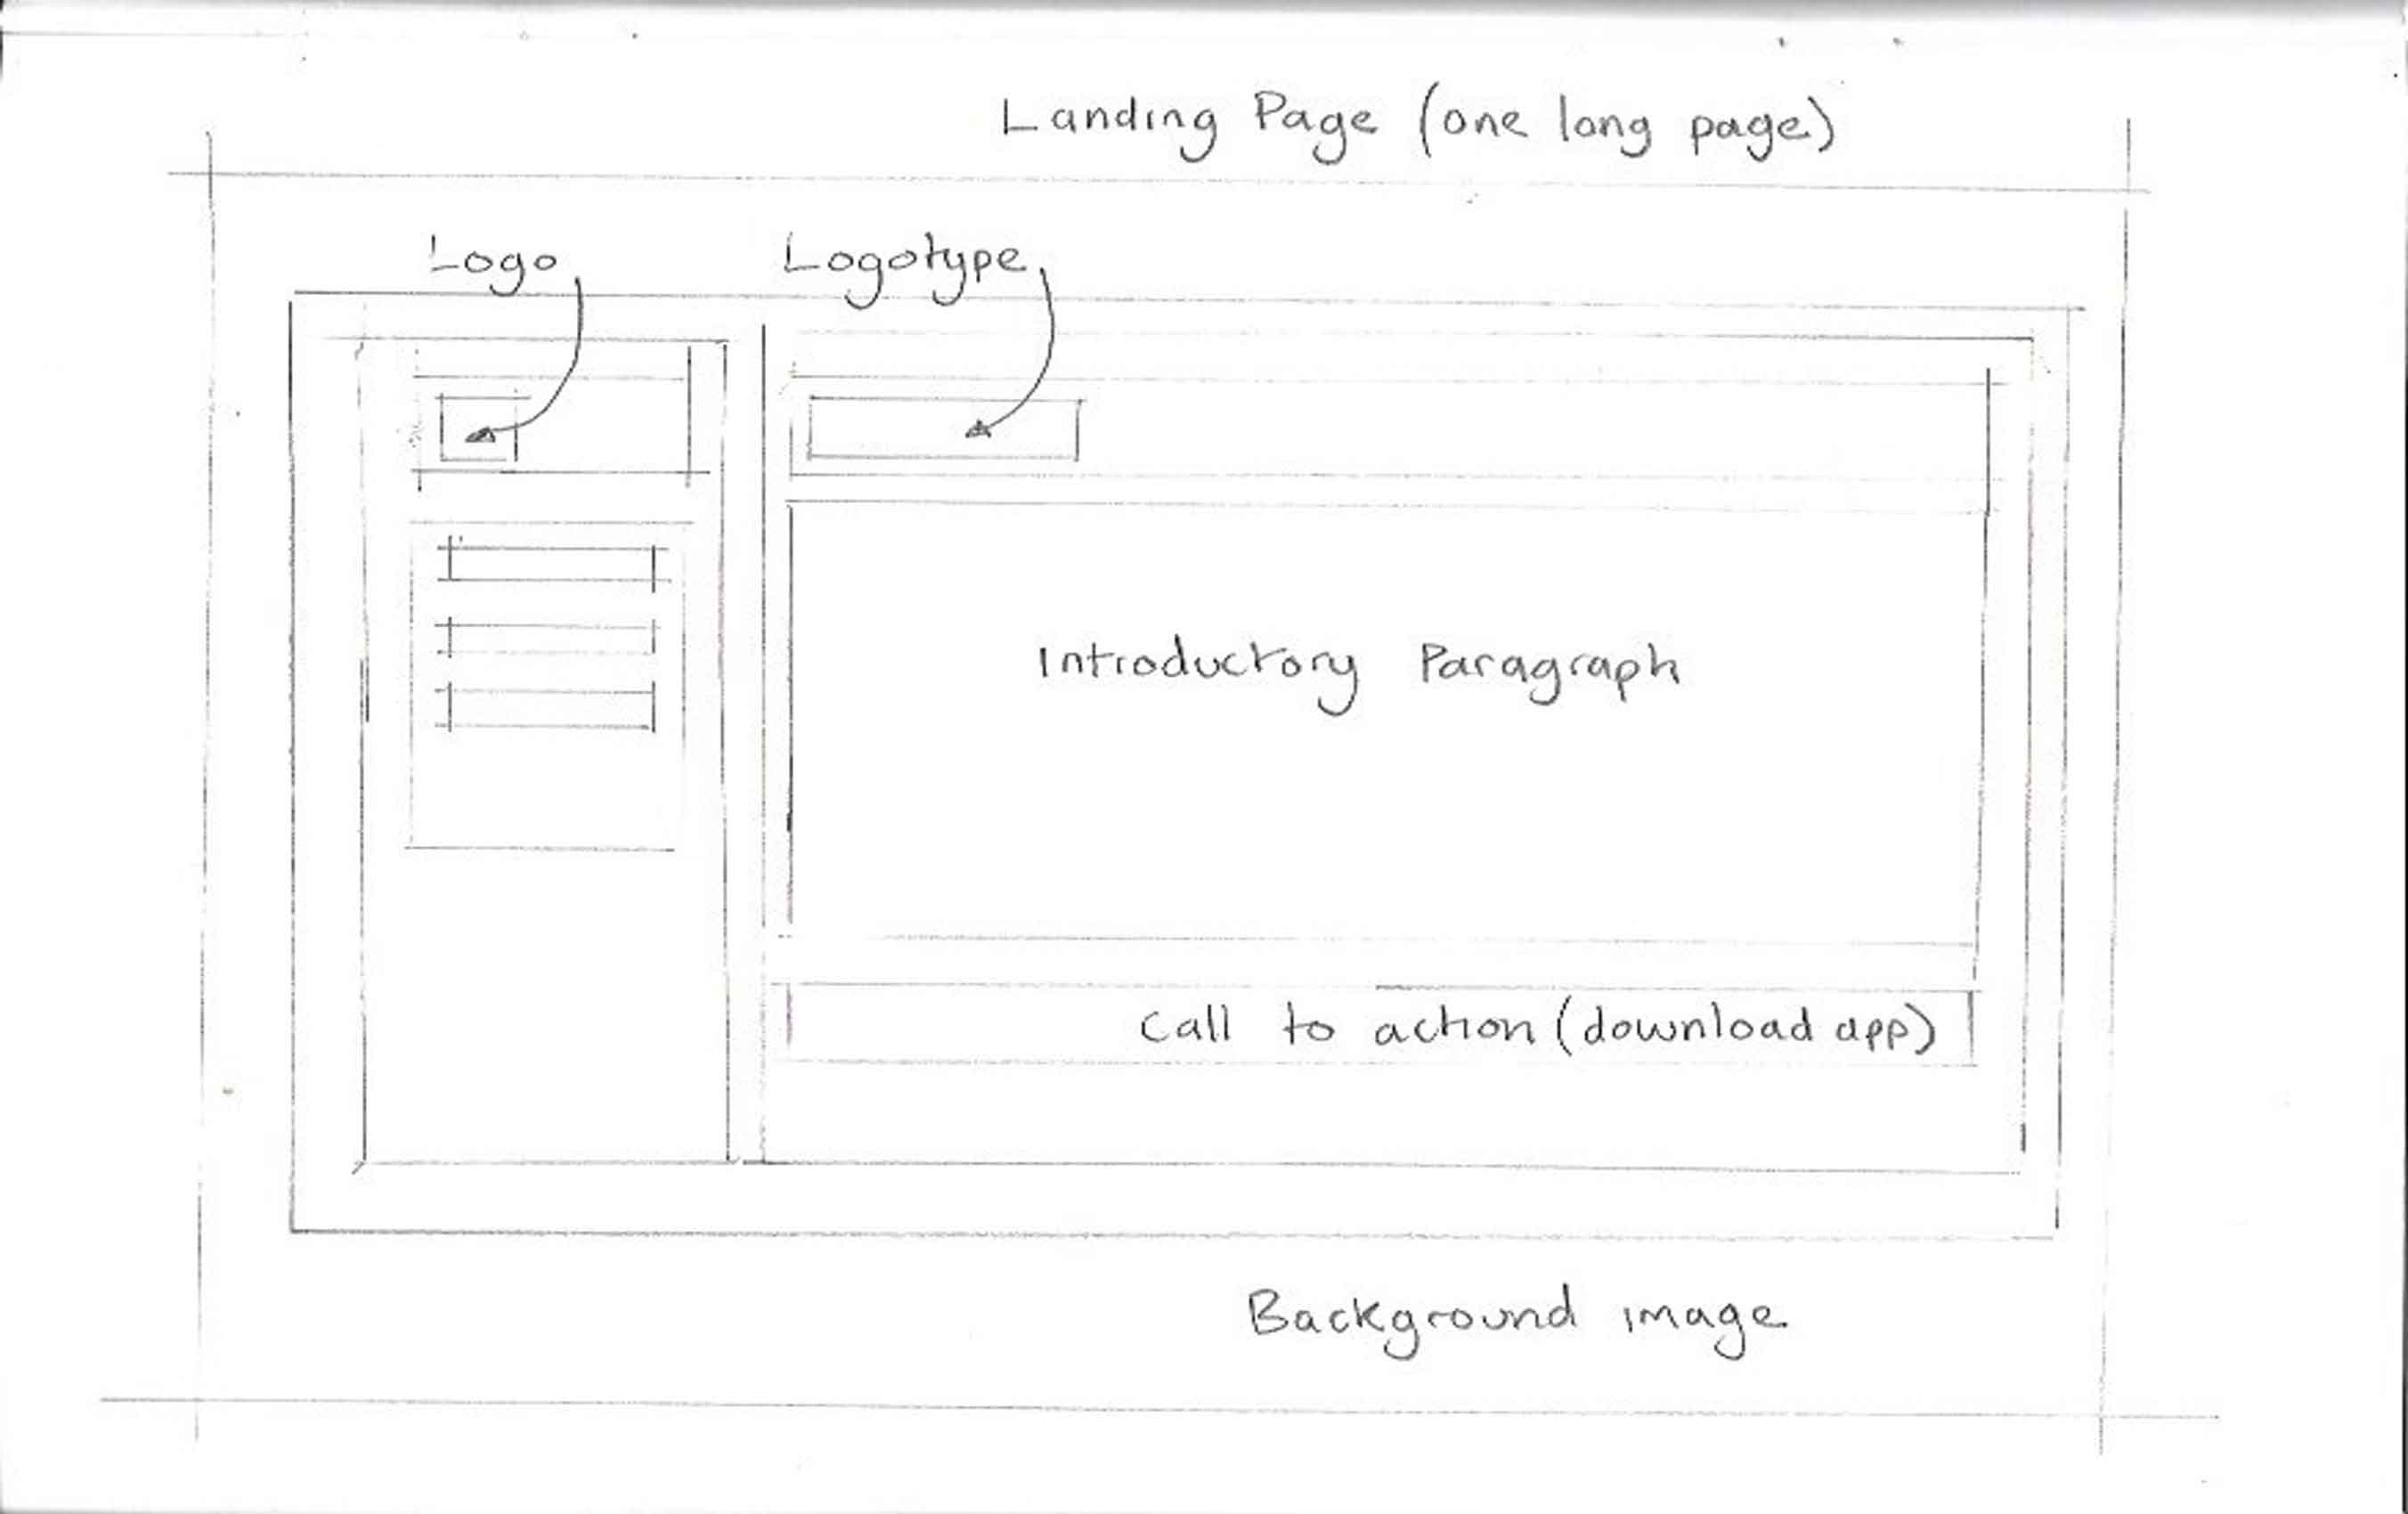 Landing Page (one long page)
Logo
Logotype
Introductory Paragraph
Call to action (download app)
Background image